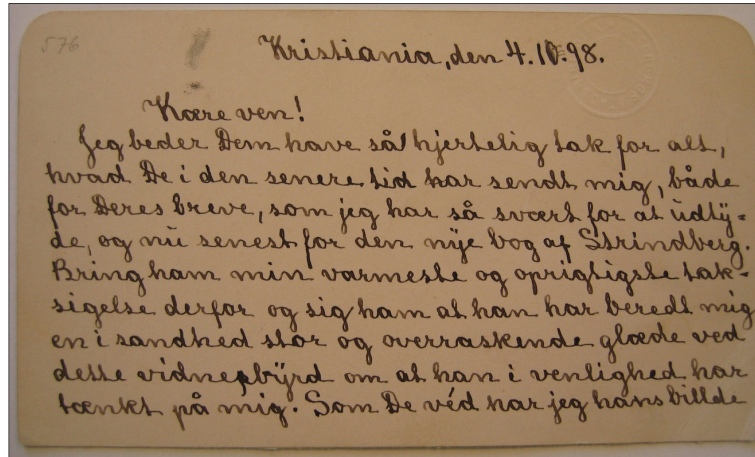 576
Kristiania, den 4.10.98.
Kære ven!
Jeg beder Dem have så hjertelig tak for alt,
hvad De i den senere tid har sendt mig, både
for Deres breve, som jeg har så svært for at udty-
de, og nu senest for den nye bog af Strindberg.
Bring ham min varmeste og oprigtigste tak-
sigelse derfor og sig ham at han har beredt mig
en i sandhed stor og overraskende glæde ved
dette vidnesbyrd om at han i venlighed har
tænkt på mig. Som De véd har jeg hans billde